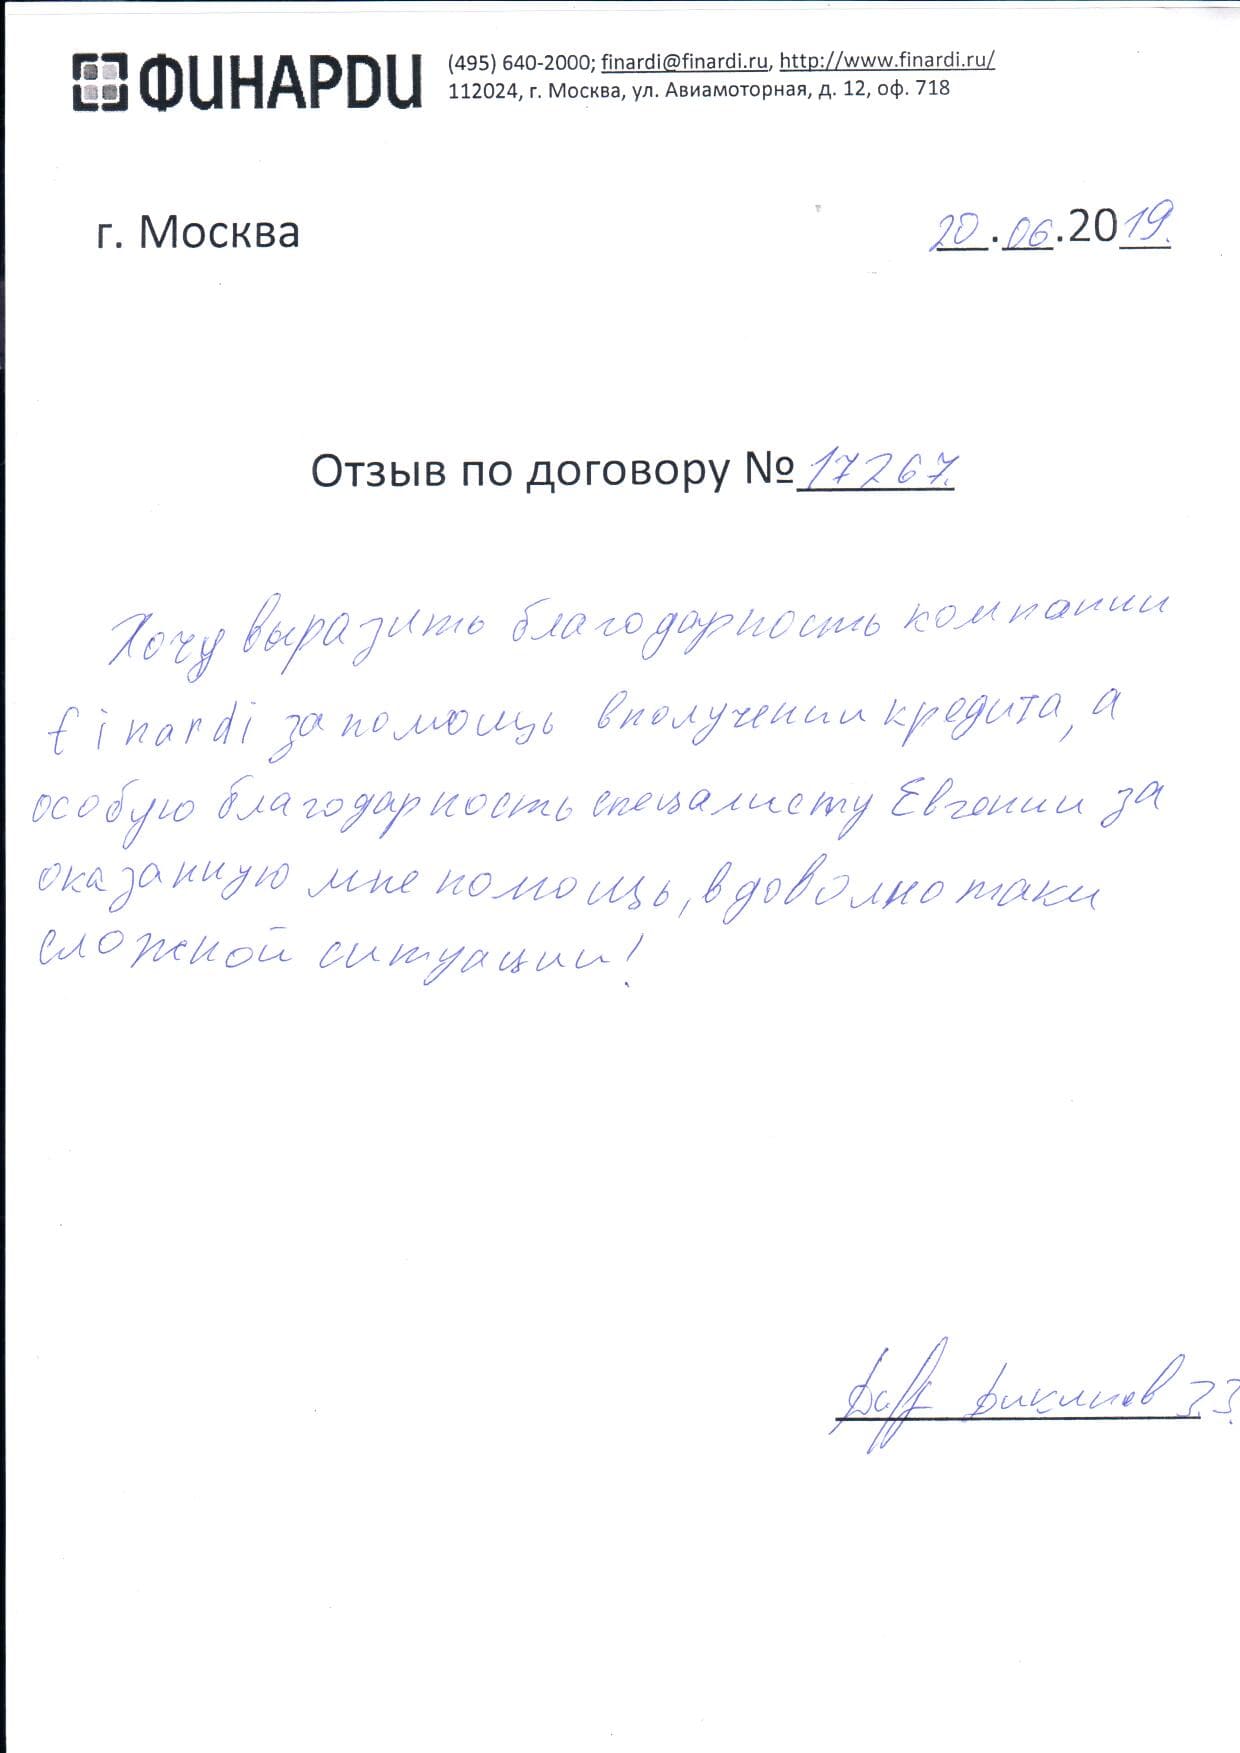 ФИНАРДИ
(495) 640-2000; finardi@finardi.ru, http://www.finardi.ru/
112024, г. Москва, ул. Авиамоторная, д. 12, оф. 718
г. Москва 20.06.2019.
Отзыв по договору № 17267.
Хочу выразить благодарность компании
finardi за помощь в получении кредита, а
особую благодарность спецалисту Евгении за
оказанную мне помощь, в доволно таки
сложной ситуации!
З.З.